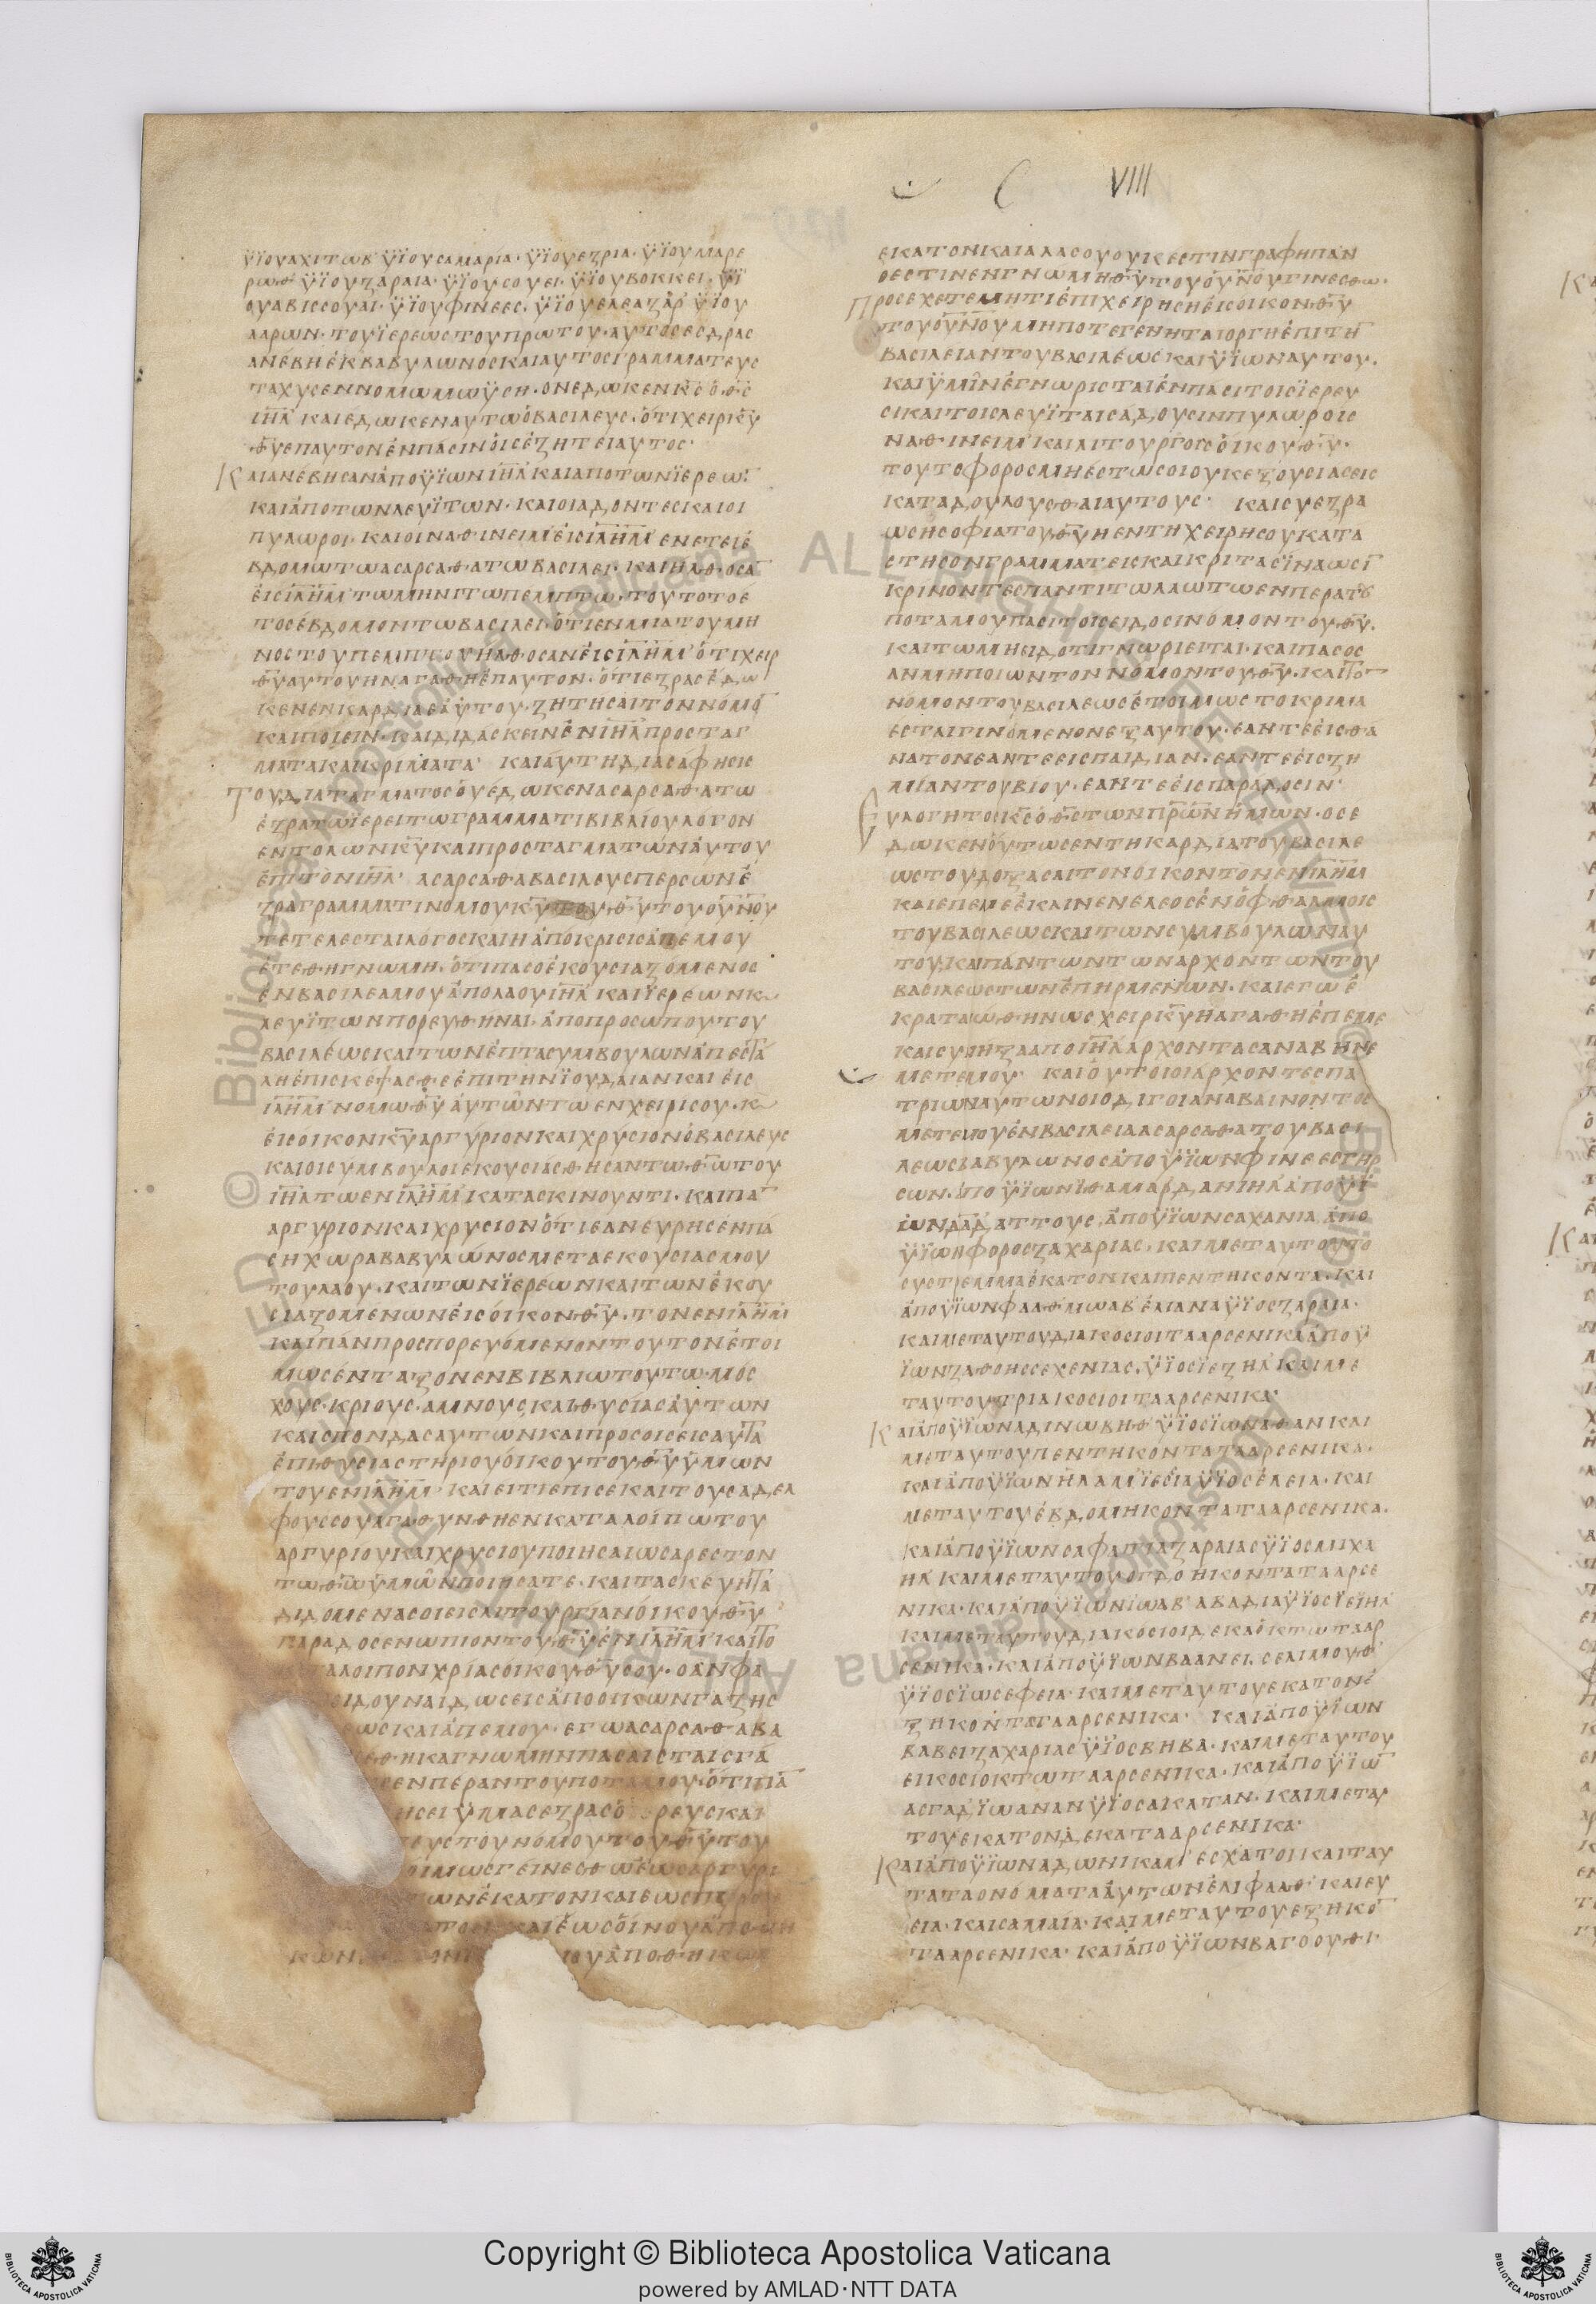 VIIII
ΫΪΟΥΑΧΙΤΩΒ ΫΪΟΥΣΑΜΑΡΙΑ· ΫΪΟΥΕΖΡΙΑ· ΫΪΟΥΜΑΡΕ
ΡΩΘ ΫΪΟΥΖΑΡΑΙΑ· ΫΪΟΥΣΟΥΕΙ· ΫΪΟΥΒΟΚΚΕΙ· ΫΪ
ΟΥΑΒΙΣΣΟΥΑΙ· ΫΪΟΥΦΙΝΕΕΣ· ΫΪΟΥΕΛΕΑΖΑΡ ΫΪΟΥ
ΑΑΡΩΝ· ΤΟΥΪΕΡΕΩΣΤΟΥΠΡΩΤΟΥ· ΑΥΤΟΣΕΣΔΡΑΣ
ΑΝΕΒΗΕΚΒΑΒΥΛΩΝΟΣΚΑΙΑΥΤΟΣΓΡΑΜΜΑΤΕΥΣ
ΤΑΧΥΣΕΝΝΟΜΩΜΩΫΣΗ· ΟΝΕΔΩΚΕΝΚ̅Σ̅Ο Θ̅Σ̅
Ι̅Η̅Λ̅ ΚΑΙΕΔΩΚΕΝΑΥΤΩΟΒΑΣΙΛΕΥΣ· ΟΤΙΧΕΙΡΚ̅Υ̅
Θ̅Υ̅ΕΠΑΥΤΟΝΕΝΠΑΣΙΝΟΙΣΕΖΗΤΕΙΑΥΤΟΣ·
ΚΑΙΑΝΕΒΗΣΑΝΑΠΟΫΪΩΝΙ̅Η̅Λ̅ΚΑΙΑΠΟΤΩΝΪΕΡΕΩ̅
ΚΑΙΑΠΟΤΩΝΛΕΥΪΤΩΝ· ΚΑΙΟΙΑΔΟΝΤΕΣΚΑΙΟΙ
ΠΥΛΩΡΟΙ· ΚΑΙΟΙΝΑΘΙΝΕΙΜΕΙΣΙ̅Λ̅Η̅Μ̅ ΕΝΕΤΕΙΕ
ΒΔΟΜΩΤΩΑΣΑΡΣΑΘΑΤΩΒΑΣΙΛΕΙ· ΚΑΙΗΛΘΟΣΑ̅
ΕΙΣΙ̅Λ̅Η̅Μ̅ΤΩΜΗΝΙΤΩΠΕΜΠΤΩ· ΤΟΥΤΟΤΟΕ
ΤΟΣΕΒΔΟΜΟΝΤΩΒΑΣΙΛΕΙ· ΟΤΙΕΝΜΙΑΤΟΥΜΗ
ΝΟΣΤΟΥΠΕΜΠΤΟΥΗΛΘΟΣΑΝΕΙΣΙ̅Λ̅Η̅Μ̅ ΟΤΙΧΕΙΡ
Θ̅Υ̅ΑΥΤΟΥΗΝΑΓΑΘΗΕΠΑΥΤΟΝ· ΟΤΙΕΖΡΑΣΕΔΩ
ΚΕΝΕΝΚΑΡΔΙΑΕΑΥΤΟΥ· ΖΗΤΗΣΑΙΤΟΝΝΟΜΟ̅
ΚΑΙΠΟΙΕΙΝ· ΚΑΙΔΙΔΑΣΚΕΙΝΕΝΙ̅Η̅Λ̅ΠΡΟΣΤΑΓ
ΜΑΤΑΚΑΙΚΡΙΜΑΤΑ· ΚΑΙΑΥΤΗΔΙΑΣΑΦΗΣΙΣ
ΤΟΥΔΙΑΤΑΓΜΑΤΟΣΟΥΕΔΩΚΕΝΑΣΑΡΣΑΘΑΤΩ
ΕΖΡΑΤΩΪΕΡΕΙΤΩΓΡΑΜΜΑΤΙΒΙΒΛΙΟΥΛΟΓΟΝ
ΕΝΤΟΛΩΝΚ̅Υ̅ΚΑΙΠΡΟΣΤΑΓΜΑΤΩΝΑΥΤΟΥ
ΕΠΙΤΟΝΙ̅Η̅Λ̅· ΑΣΑΡΣΑΘΑΒΑΣΙΛΕΥΣΠΕΡΣΩΝΕ
ΖΡΑΓΡΑΜΜΑΤΙΝΟΜΟΥΚ̅Υ̅ΤΟΥΘ̅Υ̅ΤΟΥΟΥ̅Ν̅Ο̅Υ̅
ΤΕΤΕΛΕΣΤΑΙΛΟΓΟΣΚΑΙΗΑΠΟΚΡΙΣΙΣΑΠΕΜΟΥ
ΕΤΕΘΗΓΝΩΜΗ· ΟΤΙΠΑΣΟΕΚΟΥΣΙΑΖΟΜΕΝΟΣ
ΕΝΒΑΣΙΛΕΑΜΟΥΑΠΟΛΑΟΥΙ̅Η̅Λ̅ ΚΑΙΪΕΡΕΩΝΚ
ΛΕΥΪΤΩΝΠΟΡΕΥΘΗΝΑΙ· ΑΠΟΠΡΟΣΩΠΟΥΤΟΥ
ΒΑΣΙΛΕΩΣΚΑΙΤΩΝΕΠΤΑΣΥΜΒΟΥΛΩΝΑΠΕΣΤΑ
ΛΗΕΠΙΣΚΕΨΑΣΘΕΕΠΙΤΗΝΪΟΥΔΑΙΑΝΚΑΙΕΙΣ
Ι̅Λ̅Η̅Μ̅ΝΟΜΩΘ̅Υ̅ΑΥΤΩΝΤΩΕΝΧΕΙΡΙΣΟΥ· Κ
ΕΙΣΟΙΚΟΝΚ̅Υ̅ΑΡΓΥΡΙΟΝΚΑΙΧΡΥΣΙΟΝΟΒΑΣΙΛΕΥΣ
ΚΑΙΟΙΣΥΜΒΟΥΛΟΙΕΚΟΥΣΙΑΣΘΗΣΑΝΤΩΘ̅Ω̅ΤΟΥ
Ι̅Η̅Λ̅ΤΩΕΝΙ̅Λ̅Η̅Μ̅ΚΑΤΑΣΚΙΝΟΥΝΤΙ· ΚΑΙΠΑ̅
ΑΡΓΥΡΙΟΝΚΑΙΧΡΥΣΙΟΝΟΤΙΕΑΝΕΥΡΗΣΕΝΠΑ
ΣΗΧΩΡΑΒΑΒΥΛΩΝΟΣΜΕΤΑΕΚΟΥΣΙΑΣΜΟΥ
ΤΟΥΛΑΟΥ· ΚΑΙΤΩΝΪΕΡΕΩΝΚΑΙΤΩΝΕΚΟΥ
ΣΙΑΖΟΜΕΝΩΝΕΙΣΟΙΚΟΝΘ̅Υ̅· ΤΟΝΕΝΙ̅Λ̅Η̅Μ̅
ΚΑΙΠΑΝΠΡΟΣΠΟΡΕΥΟΜΕΝΟΝΤΟΥΤΟΝΕΤΟΙ
ΜΩΣΕΝΤΑΞΟΝΕΝΒΙΒΛΙΩΤΟΥΤΩ· ΜΟΣ
ΧΟΥΣ· ΚΡΙΟΥΣ· ΑΜΝΟΥΣΚΑΙΘΥΣΙΑΣΑΥΤΩΝ
ΚΑΙΣΠΟΝΔΑΣΑΥΤΩΝΚΑΙΠΡΟΣΟΙΣΕΙΣΑΥΤΑ
ΕΠΙΘΥΣΙΑΣΤΗΡΙΟΥΟΙΚΟΥΤΟΥΘ̅Υ̅ΫΜΩΝ
ΤΟΥΕΝΙ̅Λ̅Η̅Μ̅· ΚΑΙΕΙΤΙΕΠΙΣΕΚΑΙΤΟΥΣΑΔΕΛ
ΦΟΥΣΣΟΥΑΓΑΘΥΝΘΗΕΝΚΑΤΑΛΟΙΠΩΤΟΥ
ΑΡΓΥΡΙΟΥΚΑΙΧΡΥΣΙΟΥΠΟΙΗΣΑΙΩΣΑΡΕΣΤΟΝ
ΤΩΘ̅Ω̅ΫΜΩΝΠΟΙΗΣΑΤΕ· ΚΑΙΤΑΣΚΕΥΗΤΑ
ΔΙΔΟΜΕΝΑΣΟΙΕΙΣΛΙΤΟΥΡΓΙΑΝΟΙΚΟΥΘ̅Υ̅
ΠΑΡΑΔΟΣΕΝΩΠΙΟΝΤΟΥΘ̅Υ̅ΕΝΙ̅Λ̅Η̅Μ̅ ΚΑΙΤΟ
ΚΑΤΑΛΟΙΠΟΝΧΡΙΑΣΟΙΚΟΥΘ̅Υ̅ΣΟΥ· ΟΑΝΦΑ
ΔΟΥΝΑΙΔΩΣΕΙΣΑΠΟΟΙΚΩΝΓΑΖΗΣ
ΕΩΣΚΑΙΑΠΕΜΟΥ· ΕΓΩΑΣΑΡΣΑΘΑΒΑ
ΕΘΗΚΑΓΝΩΜΗΝΠΑΣΑΙΣΤΑΙΣΓΑ
ΣΕΝΠΕΡΑΝΤΟΥΠΟΤΑΜΟΥ· ΟΤΙΠΑ̅
ΗΣΕΙΫΜΑΣΕΖΡΑΣΟ ΡΕΥΣΚΑΙ
ΕΥΣΤΟΥΝΟΜΟΥΤΟΥΘ̅Υ̅ΤΟΥ
ΟΙΜΩΣΓΕΙΝΕΣΘΩΕΩΣΑΡΓΥΡΙ
ΤΩΝΕΚΑΤΟΝΚΑΙΕΩΣΠΥΡΟΥ
ΑΤΟΝ ΚΑΙΕΩΣΟΙΝΟΥΑΠΟΘΗ
ΚΩΝ ΙΟΥΑΠΟΘΗΚΩΝ
ΕΚΑΤΟΝΚΑΙΑΛΑΣΟΥΟΥΚΕΣΤΙΝΓΡΑΦΗΠΑΝ
ΟΕΣΤΙΝΕΝΓΝΩΜΗΘ̅Υ̅ΤΟΥΟΥ̅Ν̅Ο̅Υ̅ΓΙΝΕΣΘΩ·
ΠΡΟΣΕΧΕΤΕΜΗΤΙΕΠΙΧΕΙΡΗΣΗΕΙΣΟΙΚΟΝΘ̅Υ̅
ΤΟΥΟΥ̅Ν̅Ο̅Υ̅ΜΗΠΟΤΕΓΕΝΗΤΑΙΟΡΓΗΕΠΙΤΗ̅
ΒΑΣΙΛΕΙΑΝΤΟΥΒΑΣΙΛΕΩΣΚΑΙΫΪΩΝΑΥΤΟΥ·
ΚΑΙΫΜΙΝΕΓΝΩΡΙΣΤΑΙΕΝΠΑΣΙΤΟΙΣΪΕΡΕΥ
ΣΙΚΑΙΤΟΙΣΛΕΥΪΤΑΙΣΑΔΟΥΣΙΝΠΥΛΩΡΟΙΣ
ΝΑΘΙΝΕΙΜ ΚΑΙΛΙΤΟΥΡΓΟΙΣΟΙΚΟΥΘ̅Υ̅·
ΤΟΥΤΟΦΟΡΟΣΜΗΕΣΤΩΣΟΙΟΥΚΕΞΟΥΣΙΑΣΕΙΣ
ΚΑΤΑΔΟΥΛΟΥΣΘΑΙΑΥΤΟΥΣ· ΚΑΙΣΥΕΖΡΑ
ΩΣΗΣΟΦΙΑΤΟΥΘ̅Υ̅ΗΕΝΤΗΧΕΙΡΗΣΟΥΚΑΤΑ
ΣΤΗΣΟΝΓΡΑΜΜΑΤΕΙΣΚΑΙΚΡΙΤΑΣΪΝΑΩΣΙ̅
ΚΡΙΝΟΝΤΕΣΠΑΝΤΙΤΩΛΑΩΤΩΕΝΠΕΡΑΤΟΥ
ΠΟΤΑΜΟΥΠΑΣΙΤΟΙΣΕΙΔΟΣΙΝΟΜΟΝΤΟΥΘ̅Υ̅·
ΚΑΙΤΩΜΗΕΙΔΟΤΙΓΝΩΡΙΕΙΤΑΙ· ΚΑΙΠΑΣΟΣ
ΑΝΜΗΠΟΙΩΝΤΟΝΝΟΜΟΝΤΟΥΘ̅Υ̅· ΚΑΙΤΟ̅
ΝΟΜΟΝΤΟΥΒΑΣΙΛΕΩΣΕΤΟΙΜΩΣΤΟΚΡΙΜΑ
ΕΣΤΑΙΓΙΝΟΜΕΝΟΝΕΞΑΥΤΟΥ· ΕΑΝΤΕΕΙΣΘΑ
ΝΑΤΟΝΕΑΝΤΕΕΙΣΠΑΙΔΙΑΝ· ΕΑΝΤΕΕΙΣΖΗ
ΜΙΑΝΤΟΥΒΙΟΥ· ΕΑΝΤΕΕΙΣΠΑΡΑΔΟΣΙΝ·
ΕΥΛΟΓΗΤΟΣΚ̅Σ̅ΟΘ̅Σ̅ΤΩΝΠ̅Ρ̅Ω̅Ν̅ΗΜΩΝ· ΟΣΕ
ΔΩΚΕΝΟΥΤΩΣΕΝΤΗΚΑΡΔΙΑΤΟΥΒΑΣΙΛΕ
ΩΣΤΟΥΔΟΞΑΣΑΙΤΟΝΟΙΚΟΝΤΟΝΕΝΙ̅Λ̅Η̅Μ̅
ΚΑΙΕΠΕΜΕΕΚΛΙΝΕΝΕΛΕΟΣΕΝΟΦΘΑΛΜΟΙΣ
ΤΟΥΒΑΣΙΛΕΩΣΚΑΙΤΩΝΣΥΜΒΟΥΛΩΝΑΥ
ΤΟΥΚΑΙΠΑΝΤΩΝΤΩΝΑΡΧΟΝΤΩΝΤΟΥ
ΒΑΣΙΛΕΩΣΤΩΝΕΠΗΡΜΕΝΩΝ· ΚΑΙΕΓΩΕ
ΚΡΑΤΑΙΩΘΗΝΩΣΧΕΙΡΚ̅Υ̅ΗΑΓΑΘΗΕΠΕΜΕ
ΚΑΙΣΥΝΗΞΑΑΠΟΙ̅Η̅Λ̅ΑΡΧΟΝΤΑΣΑΝΑΒΗΝΕ
ΜΕΤΕΜΟΥ· ΚΑΙΟΥΤΟΙΟΙΑΡΧΟΝΤΕΣΠΑ
ΤΡΙΩΝΑΥΤΩΝΟΙΟΔΙΓΟΙΑΝΑΒΑΙΝΟΝΤΟΣ
ΜΕΤΕΜΟΥΕΝΒΑΣΙΛΕΙΑΑΣΑΡΣΑΘΑΤΟΥΒΑΣΙ
ΛΕΩΣΒΑΒΥΛΩΝΟΣΑΠΟΫΪΩΝΦΙΝΕΕΣΓΗΡ
ΣΩΝ· ΑΠΟΫΪΩΝΪΘΑΜΑΡΔΑΝΙΗΛΑΠΟΫΪ
ΩΝΔΑ̅Δ̅ΑΤΤΟΥΣ· ΑΠΟΫΪΩΝΣΑΧΑΝΙΑ ΑΠΟ
ΫΪΩΝΦΟΡΟΣΖΑΧΑΡΙΑΣ· ΚΑΙΜΕΤΑΥΤΟΥΤΟ
ΣΥΣΤΡΕΜΜΑΕΚΑΤΟΝΚΑΙΠΕΝΤΗΚΟΝΤΑ· ΚΑΙ
ΑΠΟΫΪΩΝΦΑΑΘΜΩΑΒ ΕΛΙΑΝΑΫΪΟΣΖΑΡΑΙΑ·
ΚΑΙΜΕΤΑΥΤΟΥΔΙΑΚΟΣΙΟΙΤΑΑΡΣΕΝΙΚΑΑΠΟΫ
ΪΩΝΖΑΘΟΗΣΣΕΧΕΝΙΑΣ· ΫΪΟΣΪΕΖΗΛ ΚΑΙΜΕ
ΤΑΥΤΟΥΤΡΙΑΚΟΣΙΟΙΤΑΑΡΣΕΝΙΚΑ·
ΚΑΙΑΠΟΫΪΩΝΑΔΙΝΩΒΗΘ ΫΪΟΣΪΩΝΑΘΑΝΚΑΙ
ΜΕΤΑΥΤΟΥΠΕΝΤΗΚΟΝΤΑΤΑΑΡΣΕΝΙΚΑ·
ΚΑΙΑΠΟΫΪΩΝΗΛΑΜΪΕΣΙΑΫΪΟΣΕΛΕΙΑ· ΚΑΙ
ΜΕΤΑΥΤΟΥΕΒΔΟΜΗΚΟΝΤΑΤΑΑΡΣΕΝΙΚΑ·
ΚΑΙΑΠΟΫΪΩΝΣΑΦΑΤΙΑΖΑΡΑΙΑΣΫΪΟΣΜΙΧΑ
ΗΛ ΚΑΙΜΕΤΑΥΤΟΥΟΓΔΟΗΚΟΝΤΑΤΑΑΡΣΕ
ΝΙΚΑ· ΚΑΙΑΠΟΫΪΩΝΪΩΑΒ ΑΒΑΔΙΑΫΪΟΣΪΕΪΗΛ
ΚΑΙΜΕΤΑΥΤΟΥΔΙΑΚΟΣΙΟΙΔΕΚΑΟΚΤΩΤΑΑΡ
ΣΕΝΙΚΑ· ΚΑΙΑΠΟΫΪΩΝΒΑΑΝΕΙ· ΣΕΛΙΜΟΥΘ
ΫΪΟΣΪΩΣΕΦΕΙΑ· ΚΑΙΜΕΤΑΥΤΟΥΕΚΑΤΟΝΕ
ΞΗΚΟΝΤΑΤΑΑΡΣΕΝΙΚΑ· ΚΑΙΑΠΟΫΪΩΝ
ΒΑΒΕΙΖΑΧΑΡΙΑΣΫΪΟΣΒΗΒΑ· ΚΑΙΜΕΤΑΥΤΟΥ
ΕΙΚΟΣΙΟΚΤΩΤΑΑΡΣΕΝΙΚΑ· ΚΑΙΑΠΟΫΪΩ̅
ΑΣΓΑΔΪΩΑΝΑΝΫΪΟΣΑΚΑΤΑΝ· ΚΑΙΜΕΤΑΥ
ΤΟΥΕΚΑΤΟΝΔΕΚΑΤΑΑΡΣΕΝΙΚΑ·
ΚΑΙΑΠΟΫΪΩΝΑΔΩΝΙΚΑΜ ΕΣΧΑΤΟΙΚΑΙΤΑΥ
ΤΑΤΑΟΝΟΜΑΤΑΑΥΤΩΝΕΛΙΦΑΛΑΘ ΚΑΙΕΥ
ΕΙΑ· ΚΑΙΣΑΜΑΙΑ· ΚΑΙΜΕΤΑΥΤΟΥΕΞΗΚΟ̅
ΤΑΑΡΣΕΝΙΚΑ· ΚΑΙΑΠΟΫΪΩΝΒΑΓΟΟΥΘΙ·
Copyright © Biblioteca Apostolica Vaticana
powered by AMLAD·NTT DATA